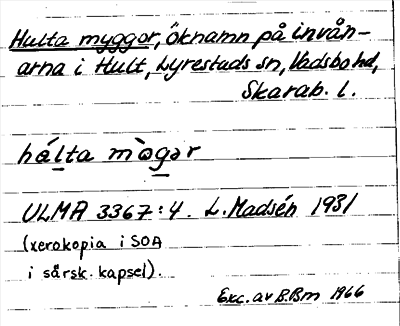 Hulta myggor, öknamn på invån-
arna i Hult, Lyrestads sn, Vadsbo hd,
Skarab. l.
hálta mògər
ULMA 3367:4. L. Madsén 1931
(xerokopia i SOA
i särsk. kapsel).
Exc. av B. Bm 1966